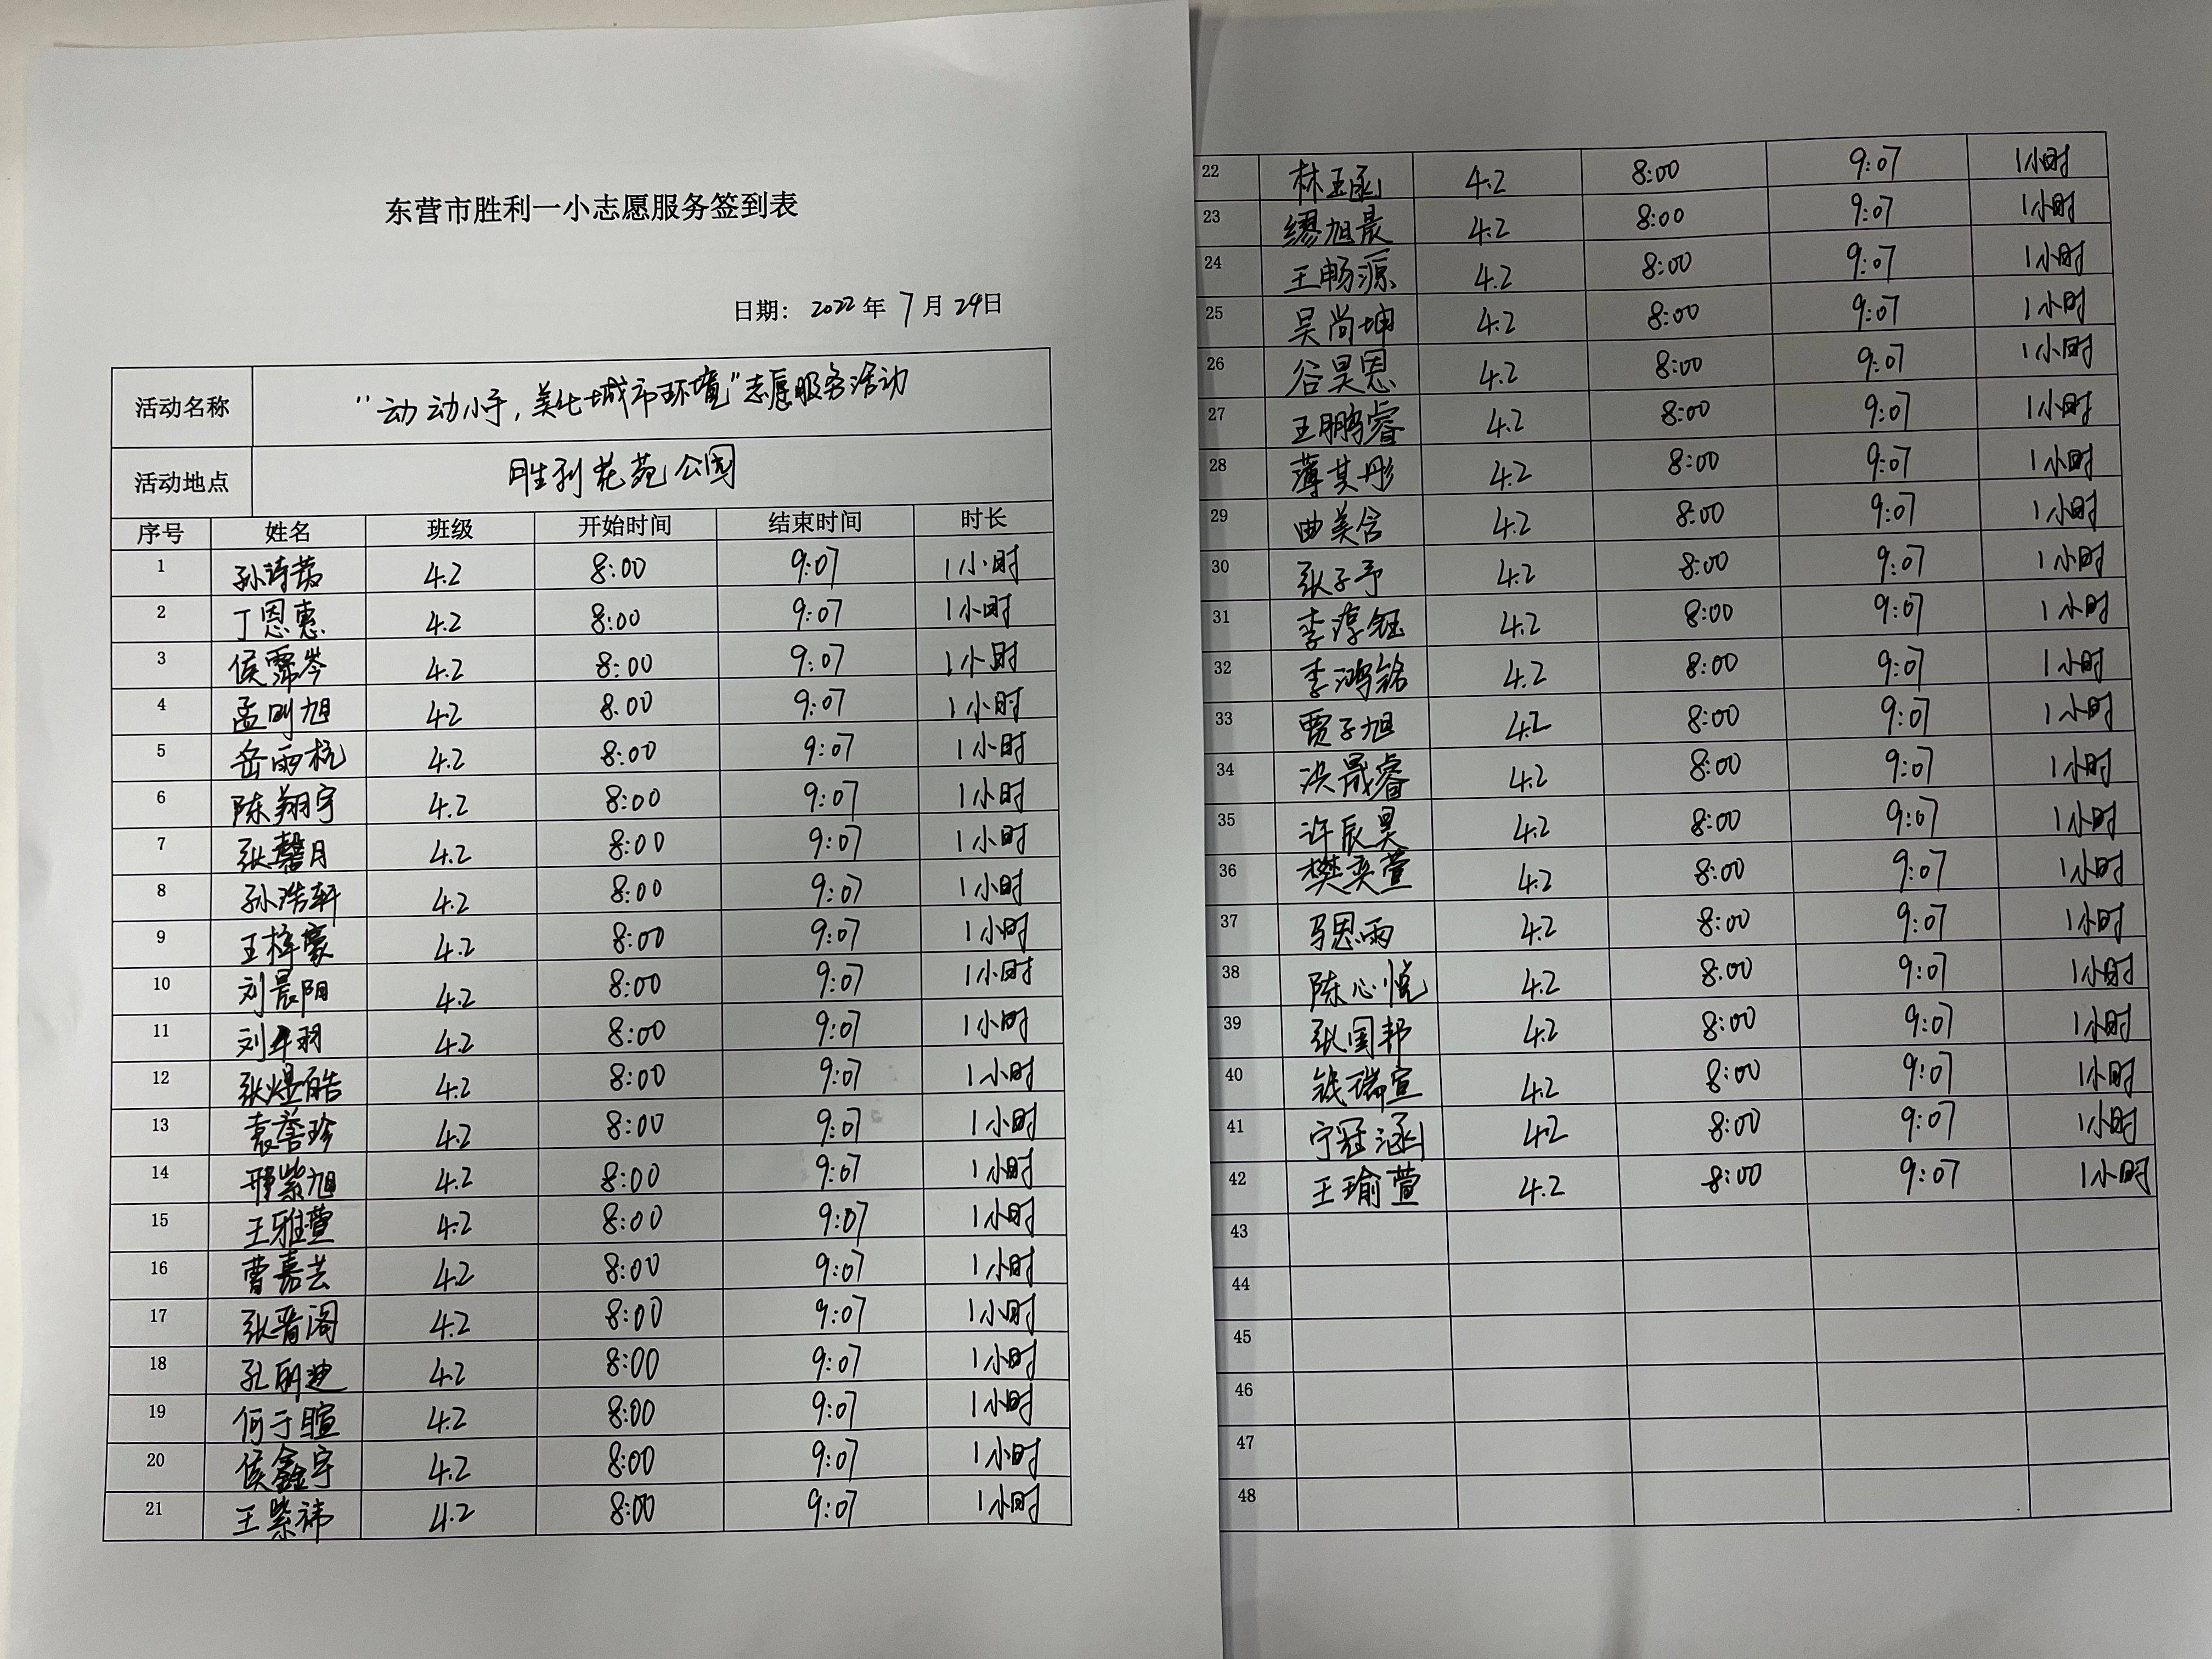 东营市胜利一小志愿服务签到表
日期：2022年7月24日
活动名称 "动动小手，美化城市环境"志愿服务活动
活动地点 胜利花苑公园
序号 姓名 班级 开始时间 结束时间 时长
1 孙诗茹 4.2 8:00 9:07 1小时
2 丁恩惠 4.2 8:00 9:07 1小时
3 侯霈岑 4.2 8:00 9:07 1小时
4 孟则旭 4.2 8:00 9:07 1小时
5 岳雨杭 4.2 8:00 9:07 1小时
6 陈翔宇 4.2 8:00 9:07 1小时
7 张馨月 4.2 8:00 9:07 1小时
8 孙浩轩 4.2 8:00 9:07 1小时
9 王梓豪 4.2 8:00 9:07 1小时
10 刘晨阳 4.2 8:00 9:07 1小时
11 4.2 8:00 9:07 1小时
12 张煜皓 4.2 8:00 9:07 1小时
13 袁誉珍 4.2 8:00 9:07 1小时
14 邢紫旭 4.2 8:00 9:07 1小时
15 王雅萱 4.2 8:00 9:07 1小时
16 曹嘉芸 4.2 8:00 9:07 1小时
17 张晋阁 4.2 8:00 9:07 1小时
18 4.2 8:00 9:07 1小时
19 何于暄 4.2 8:00 9:07 1小时
20 侯鑫宇 4.2 8:00 9:07 1小时
21 王紫祎 4.2 8:00 9:07 1小时
22 林玉函 4.2 8:00 9:07 1小时
23 缪旭晨 4.2 8:00 9:07 1小时
24 王畅源 4.2 8:00 9:07 1小时
25 吴尚坤 4.2 8:00 9:07 1小时
26 谷昊恩 4.2 8:00 9:07 1小时
27 王鹏睿 4.2 8:00 9:07 1小时
28 薄其彤 4.2 8:00 9:07 1小时
29 曲美含 4.2 8:00 9:07 1小时
30 张子予 4.2 8:00 9:07 1小时
31 李淳钰 4.2 8:00 9:07 1小时
32 李鸿铭 4.2 8:00 9:07 1小时
33 贾子旭 4.2 8:00 9:07 1小时
34 洪晟睿 4.2 8:00 9:07 1小时
35 许辰昊 4.2 8:00 9:07 1小时
36 樊奕萱 4.2 8:00 9:07 1小时
37 马恩雨 4.2 8:00 9:07 1小时
38 陈心悦 4.2 8:00 9:07 1小时
39 张国邦 4.2 8:00 9:07 1小时
40 钱瑞宣 4.2 8:00 9:07 1小时
41 宁冠涵 4.2 8:00 9:07 1小时
42 王瑜萱 4.2 8:00 9:07 1小时
43
44
45
46
47
48